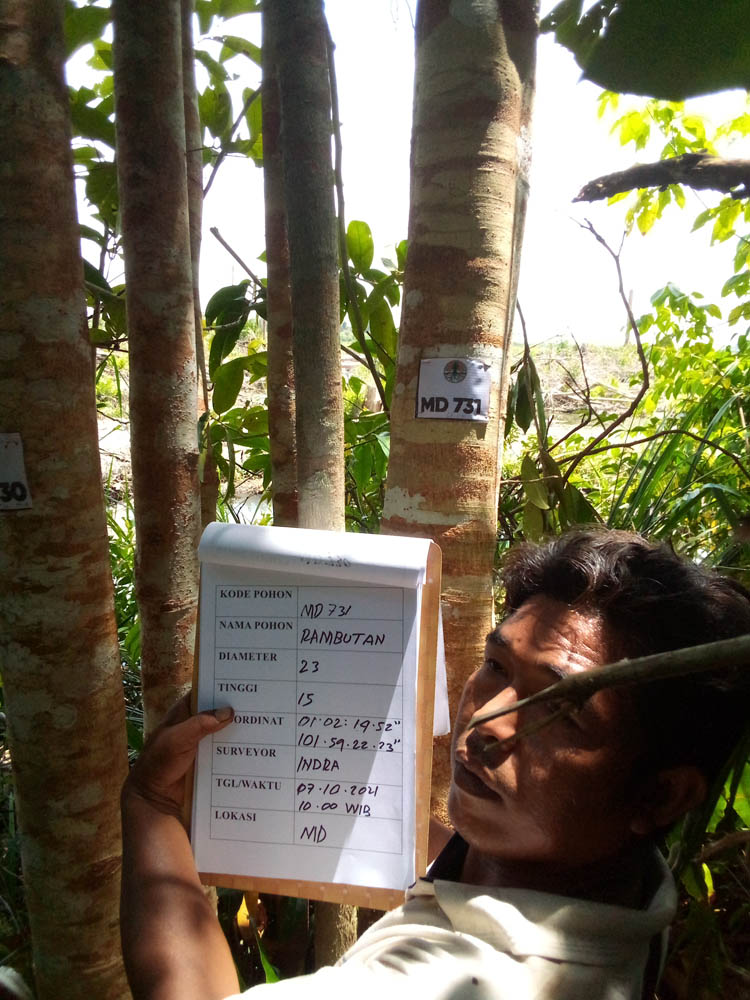 MD 731
30
KODE POHON MD 731
NAMA POHON RAMBUTAN
DIAMETER 23
TINGGI 15
OORDINAT 01.02:19.52"
101.59.22.23"
SURVEYOR INDRA
TGL/WAKTU 07.10.2021
10.00 WIB
LOKASI MD